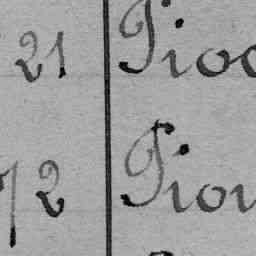 21 Pioc
72 Piov